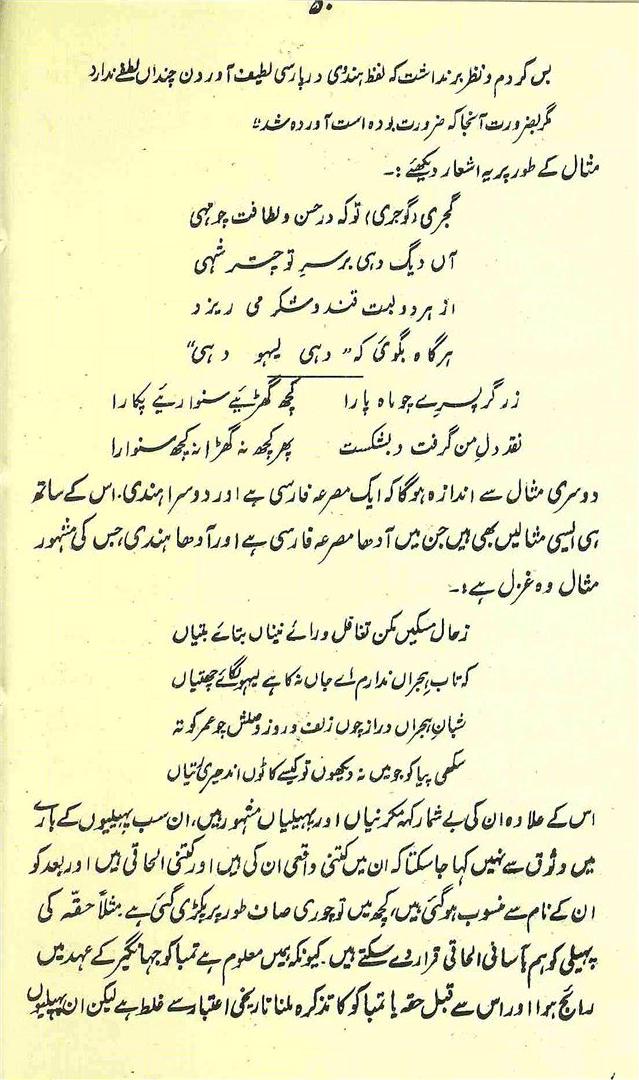 ۵۰
بس کردم و نظر برنداشت کہ لفظ ہندوی در پارسی لطیف آوردن چنداں لطفے ندارد
مگر بضرورت آنجا کہ ضرورت بودہ است آوردہ شد"
مثال کے طور پر یہ اشعار دیکھئے :۔
گجری (گوجری) توکہ در حسن و لطافت چو مہی
آں دیگ دہی بر سرِ تو چتر شہی
از ہر دو لبت قند و شکر می ریزد
ہرگاہ بگوئی کہ "دہی لیہو دہی"
زرگر پسرے چو ماہ پارا کچھ گھڑئیے سنواریئے پکارا
نقد دلِ من گرفت و بشکست پھر کچھ نہ گھڑا نہ کچھ سنوارا
دوسری مثال سے اندازہ ہوگا کہ ایک مصرعہ فارسی ہے اور دوسرا ہندی۔ اس کے ساتھ
ہی ایسی مثالیں بھی ہیں جن میں آدھا مصرعہ فارسی ہے اور آدھا ہندی، جس کی مشہور
مثال وہ غزل ہے :۔
زحال مسکیں مکن تغافل ورائے نیناں بتائے بتیاں
کہ تاب ہجراں ندارم اے جاں نہ کاہے لیہو لگائے چھتیاں
شبان ہجراں دراز چوں زلف و روز وصلش چو عمر کوتہ
سکھی پیا کو جو میں نہ دیکھوں تو کیسے کاٹوں اندھیری رتیاں
اس کے علاوہ ان کی بے شمار کہہ مکرنیاں اور پہیلیاں مشہور ہیں، ان سب پہیلیوں کے بارے
میں وثوق سے نہیں کہا جاسکتا کہ ان میں کتنی واقعی ان کی ہیں اور کتنی الحاقی ہیں اور بعد کو
ان کے نام سے منسوب ہوگئی ہیں، کچھ میں تو چوری صاف طور پر پکڑی گئی ہے مثلاً حقّہ کی
پہیلی کو ہم بآسانی الحاقی قرار دے سکتے ہیں۔ کیونکہ ہمیں معلوم ہے تمباکو جہانگیر کے عہد میں
رائج ہوا اور اس سے قبل حقہ یا تمباکو کا تذکرہ ملنا تاریخی اعتبار سے غلط ہے لیکن ان پہیلیوں